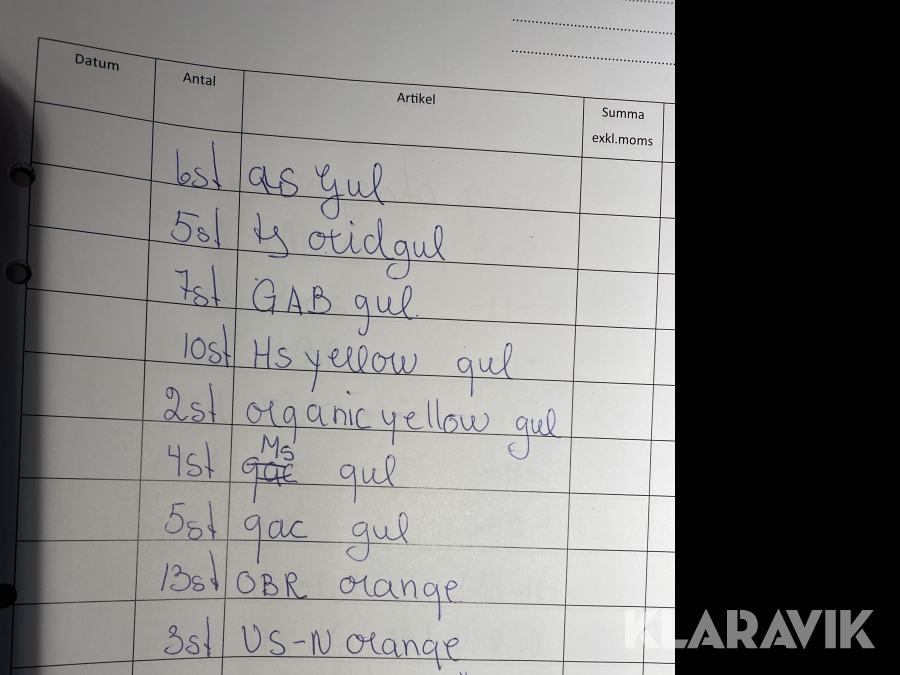 Datum Antal Artikel Summa exkl.moms
6st as gul
5st ts oxidgul
7st GAB gul.
10st Hs yellow gul
2st organic yellow gul
4st Ms gul
5st gac gul
13st OBR orange
3st VS-N orange
KLARAVIK